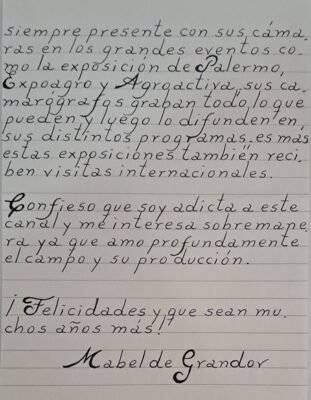 siempre presente con sus cáma.
ras en los grandes eventos co.
mo la exposición de Palermo,
Expoagro y Agroactiva, sus ca.
marógrafos graban todo lo que
pueden y luego lo difunden en
sus distintos programas. es más
estas exposiciones también reci.
ben visitas internacionales.
Confieso que soy adicta a este
canal y me interesa sobremane.
ra ya que amo profundamente
el campo y su producción.
¡Felicidades y que sean mu.
chos años más!"
Mabel de Grandov